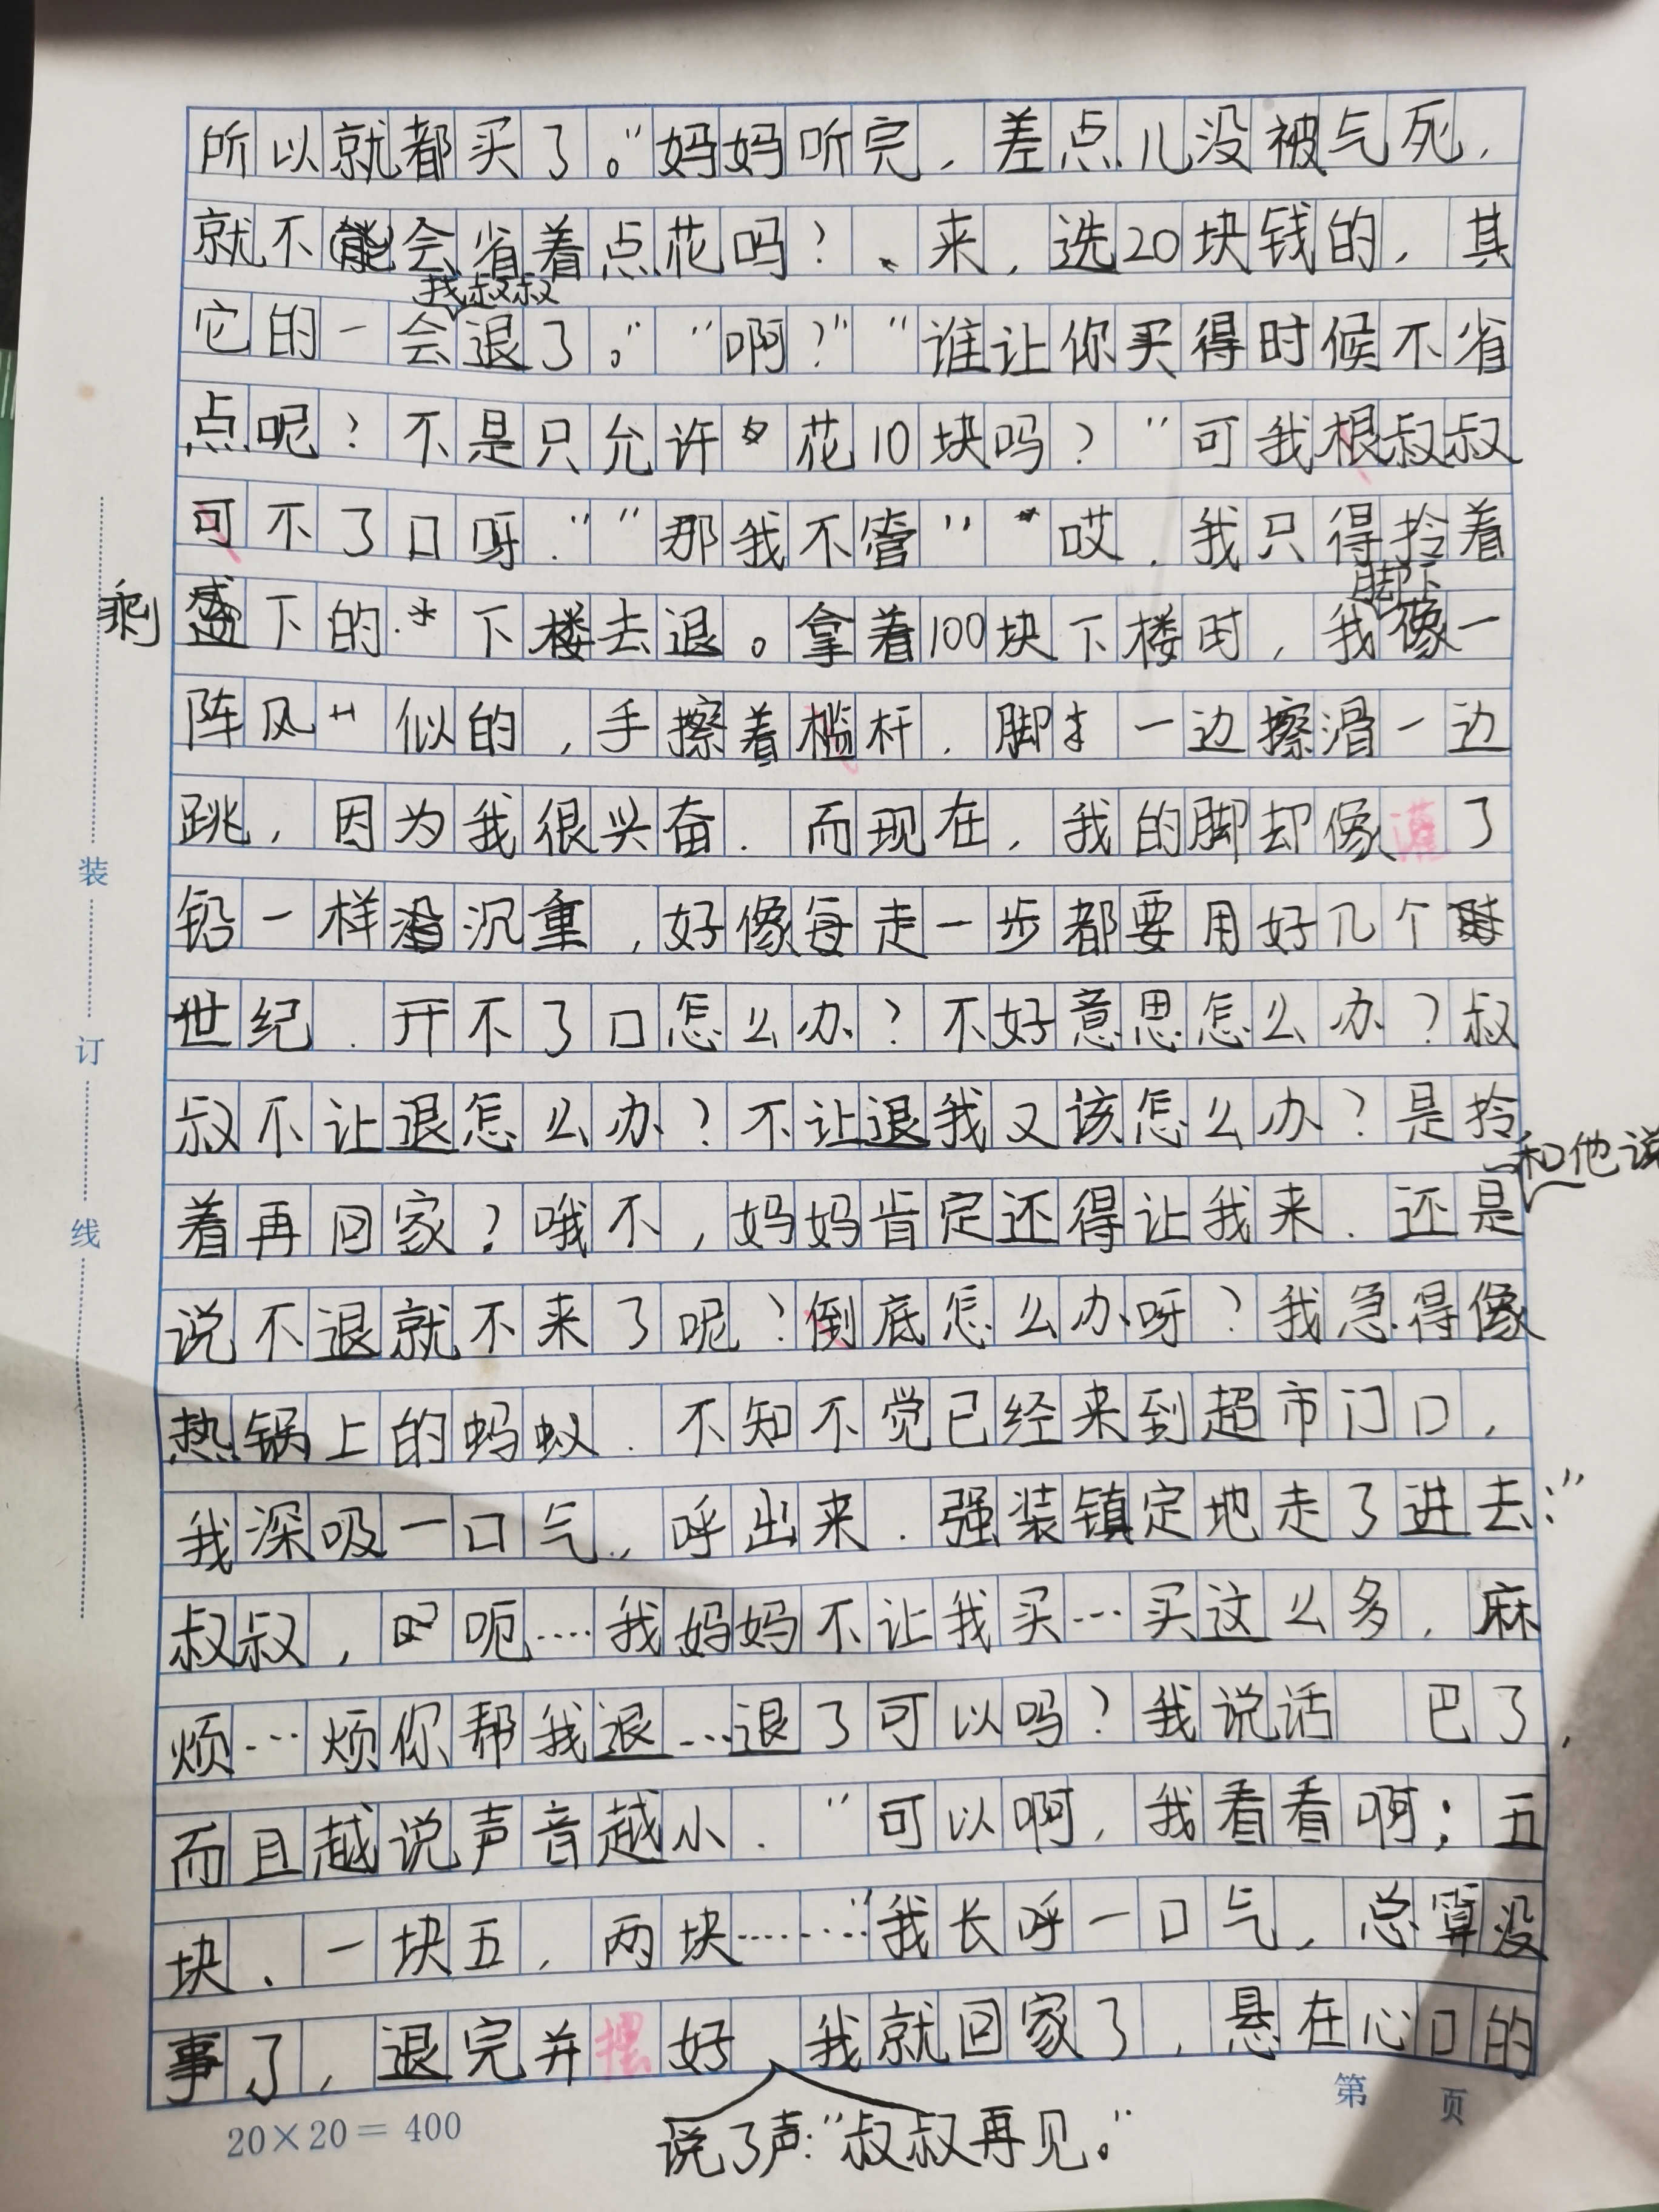 所以就都买了。”妈妈听完，差点儿没被气死，
就不会省着点花吗？、来，选20块钱的，其
我叔叔
它的一会退了。”“啊？”“谁让你买得时候不省
点呢？不是只允许花10块吗？”可我根叔叔
可不了口呀.”“那我不管”哎，我只得拎着
剩
下的.下楼去退。拿着100块下楼时，我像一
脚下
阵风似的，手擦着槛杆，脚一边擦滑一边
跳，因为我很兴奋．而现在，我的脚却像灌了
铅一样沉重，好像每走一步都要用好几个
世纪．开不了口怎么办？不好意思怎么办？叔
叔不让退怎么办？不让退我又该怎么办？是拎
和他说
着再回家？哦不，妈妈肯定还得让我来．还是
说不退就不来了呢？倒底怎么办呀？我急得像
热锅上的蚂蚁．不知不觉已经来到超市门口，
我深吸一口气，呼出来．强装镇定地走了进去：“
叔叔，呃……我妈妈不让我买…买这么多，麻
烦…烦你帮我退…退了可以吗？我说话 巴了，
而且越说声音越小．“可以啊，我看看啊；五
块、一块五，两块……”我长呼一口气，总算没
事了，退完并摆好，我就回家了，悬在心口的
说了声：“叔叔再见。”
20×20＝400
第 页
装
订
线